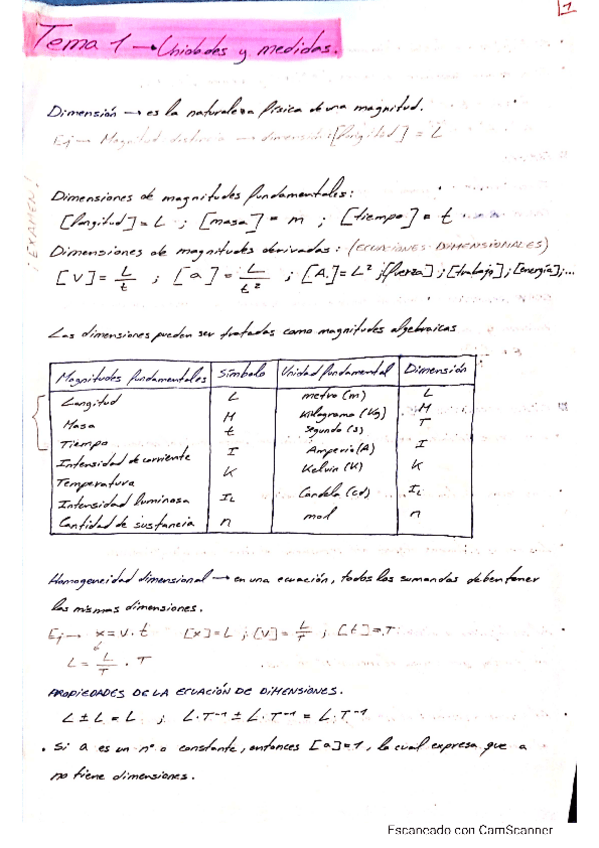 1
Tema 1 → Unidades y medidas.
Dimensión → es la naturaleza física de una magnitud.
Ej → Magnitud distancia → dimensión: [longitud] = L
¡EXAMEN!
Dimensiones de magnitudes fundamentales:
[longitud] = L ; [masa] = m ; [tiempo] = t
Dimensiones de magnitudes derivadas: (ECUACIONES DIMENSIONALES)
[V] = L/t ; [a] = L/t² ; [A] = L² ; [fuerza] ; [trabajo] ; [energía] ; ...
Las dimensiones pueden ser tratadas como magnitudes algebraicas
Magnitudes fundamentales Símbolo Unidad fundamental Dimensión
Longitud L metro (m) L
Masa M Kilogramo (Kg) M
Tiempo t segundo (s) T
Intensidad de corriente I Amperio (A) I
Temperatura K Kelvin (K) K
Intensidad luminosa IL Candela (cd) IL
Cantidad de sustancia n mol n
Homogeneidad dimensional → en una ecuación, todos los sumandos deben tener
las mismas dimensiones.
Ej → x = v · t [x] = L ; [v] = L/T ; [t] = T
L = L/T · T
PROPIEDADES DE LA ECUACIÓN DE DIMENSIONES.
L ± L = L ; L·T⁻¹ ± L·T⁻¹ = L·T⁻¹
• Si a es un nº o constante, entonces [a] = 1, lo cual expresa que a
no tiene dimensiones.
Escaneado con CamScanner